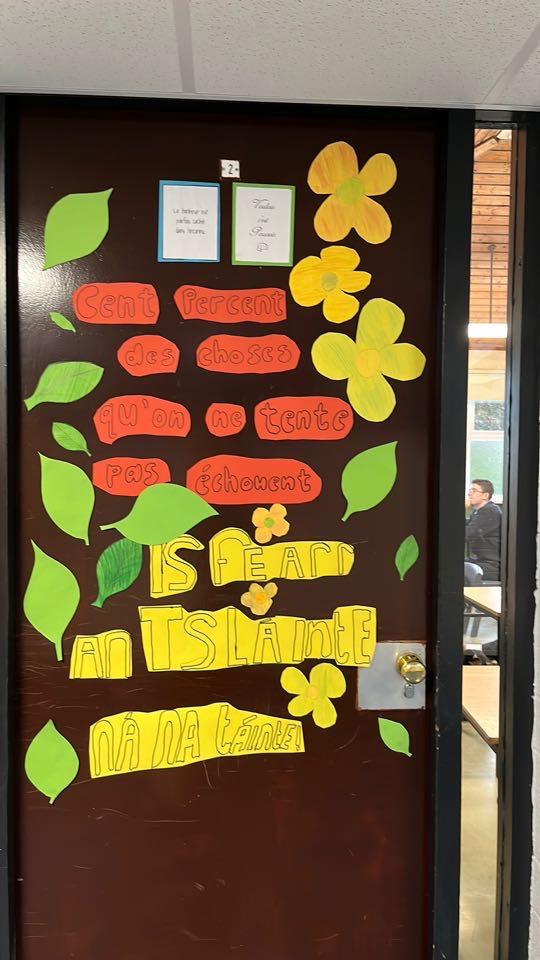 2
Le bonheur est
parfois caché
dans l'inconnu.
Vouloir
c'est
Pouvoir
Cent Percent
des choses
qu'on ne tente
pas échouent
IS FEARR
an TSLÁInte
ná na táinte!